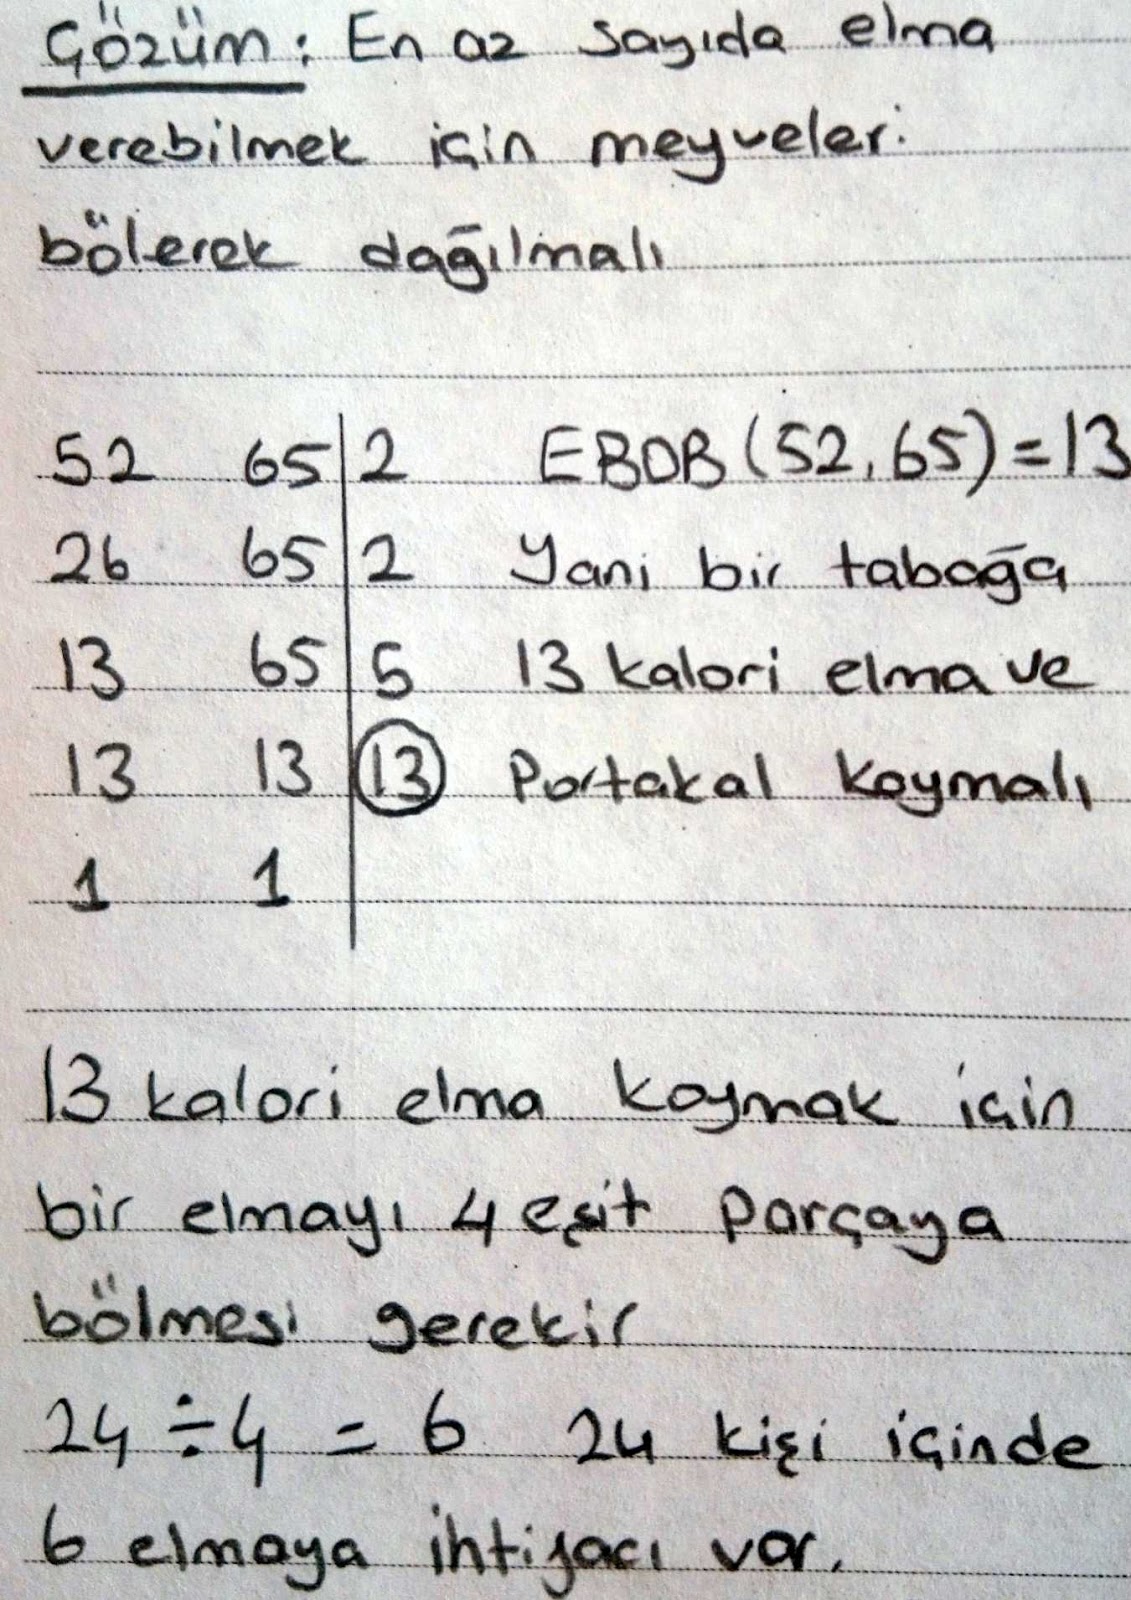 Çözüm: En az sayıda elma
verebilmek için meyveleri
bölerek dağılmalı
52 65 | 2 EBOB(52,65)=13
26 65 | 2 Yani bir tabağa
13 65 | 5 13 kalori elma ve
13 13 | 13 Portakal koymalı
1 1 |
13 kalori elma koymak için
bir elmayı 4 eşit parçaya
bölmesi gerekir
24 ÷ 4 = 6 24 kişi içinde
6 elmaya ihtiyacı var.